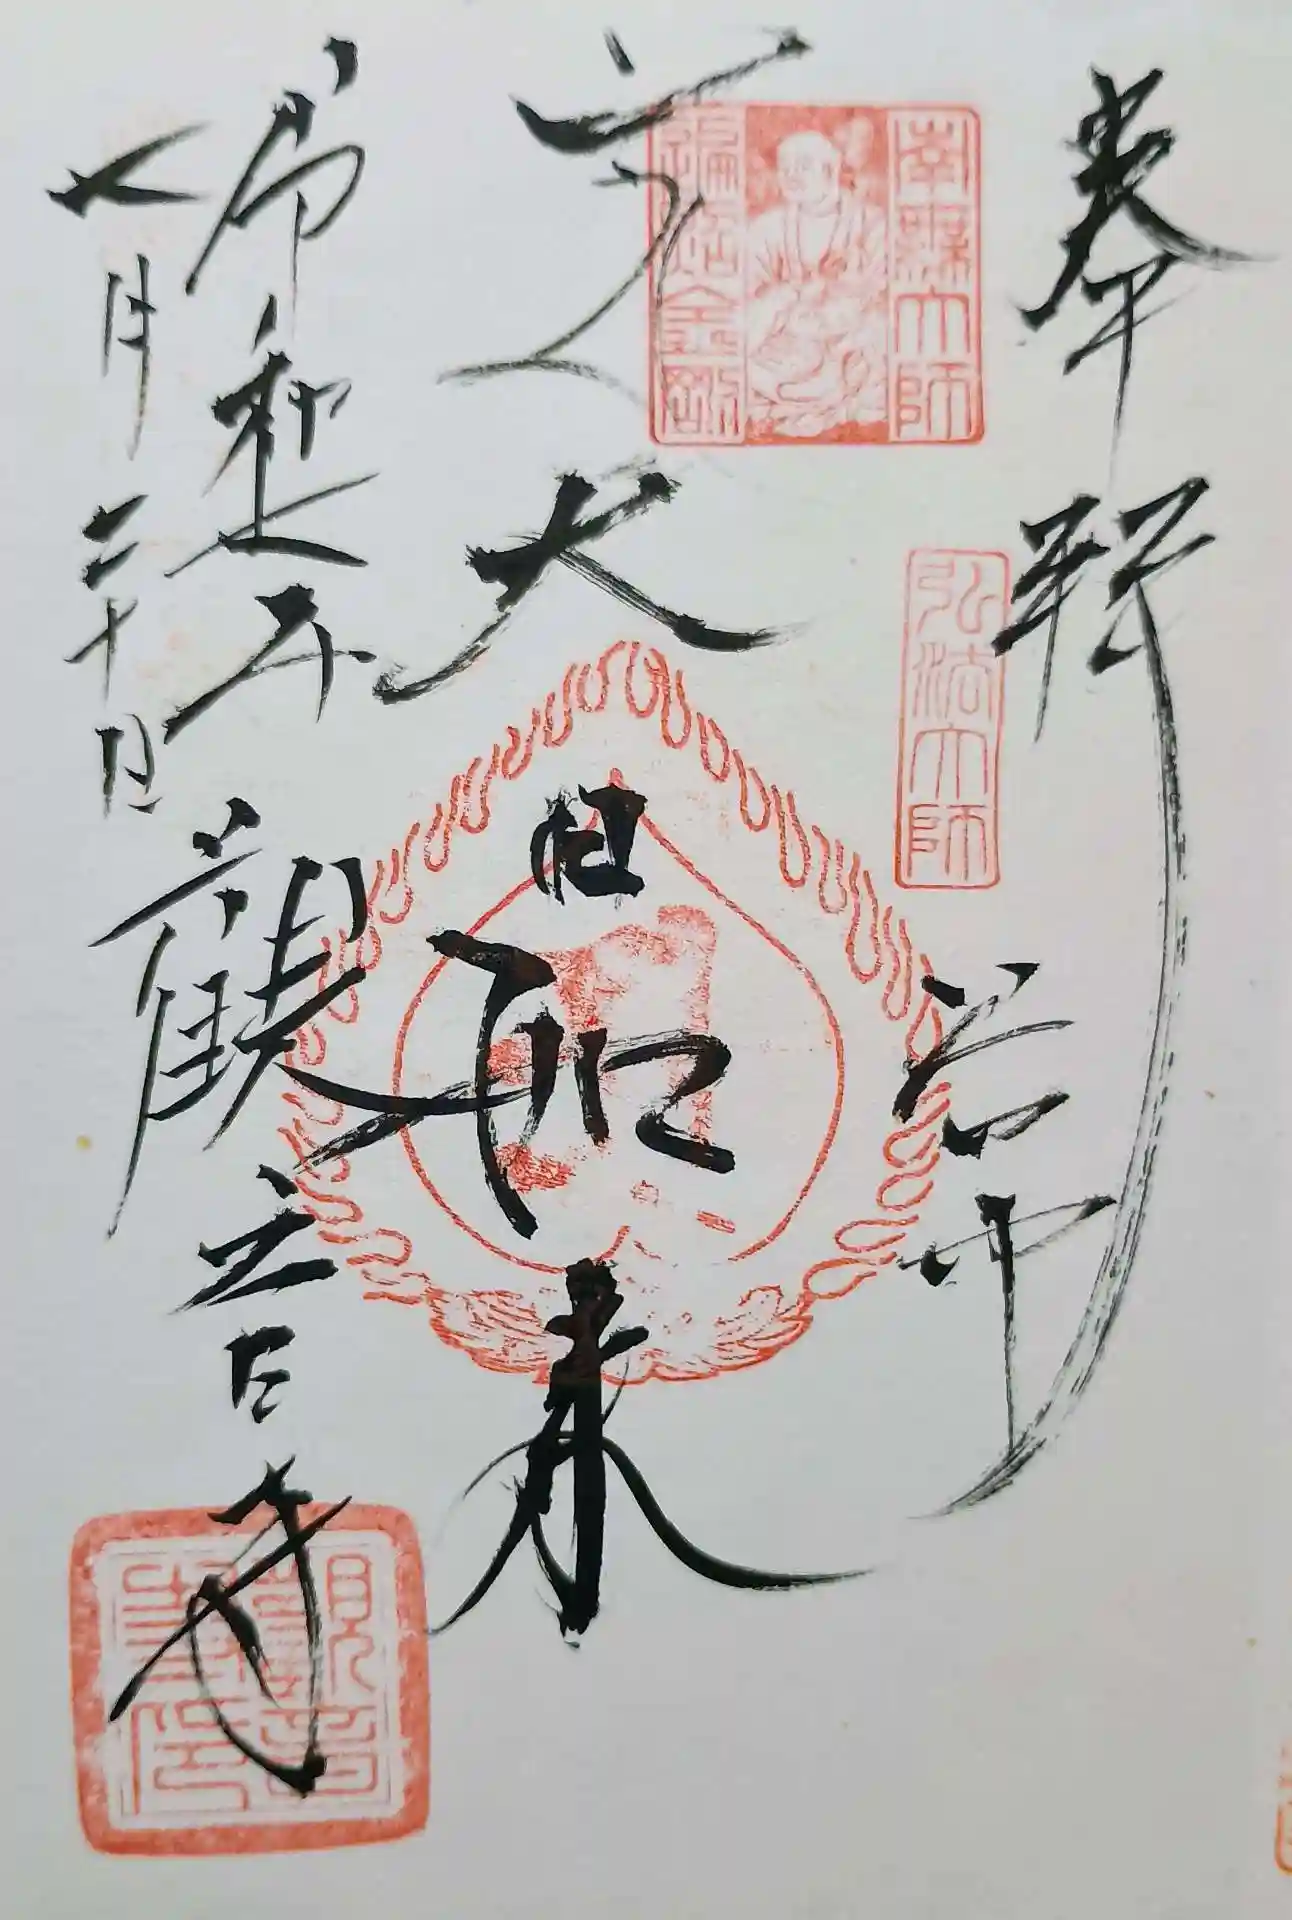 奉拝 谷中
弘法大師
南無大師
遍照金剛
大日如来
令和五年
月二十日
観音寺
観音
寺印